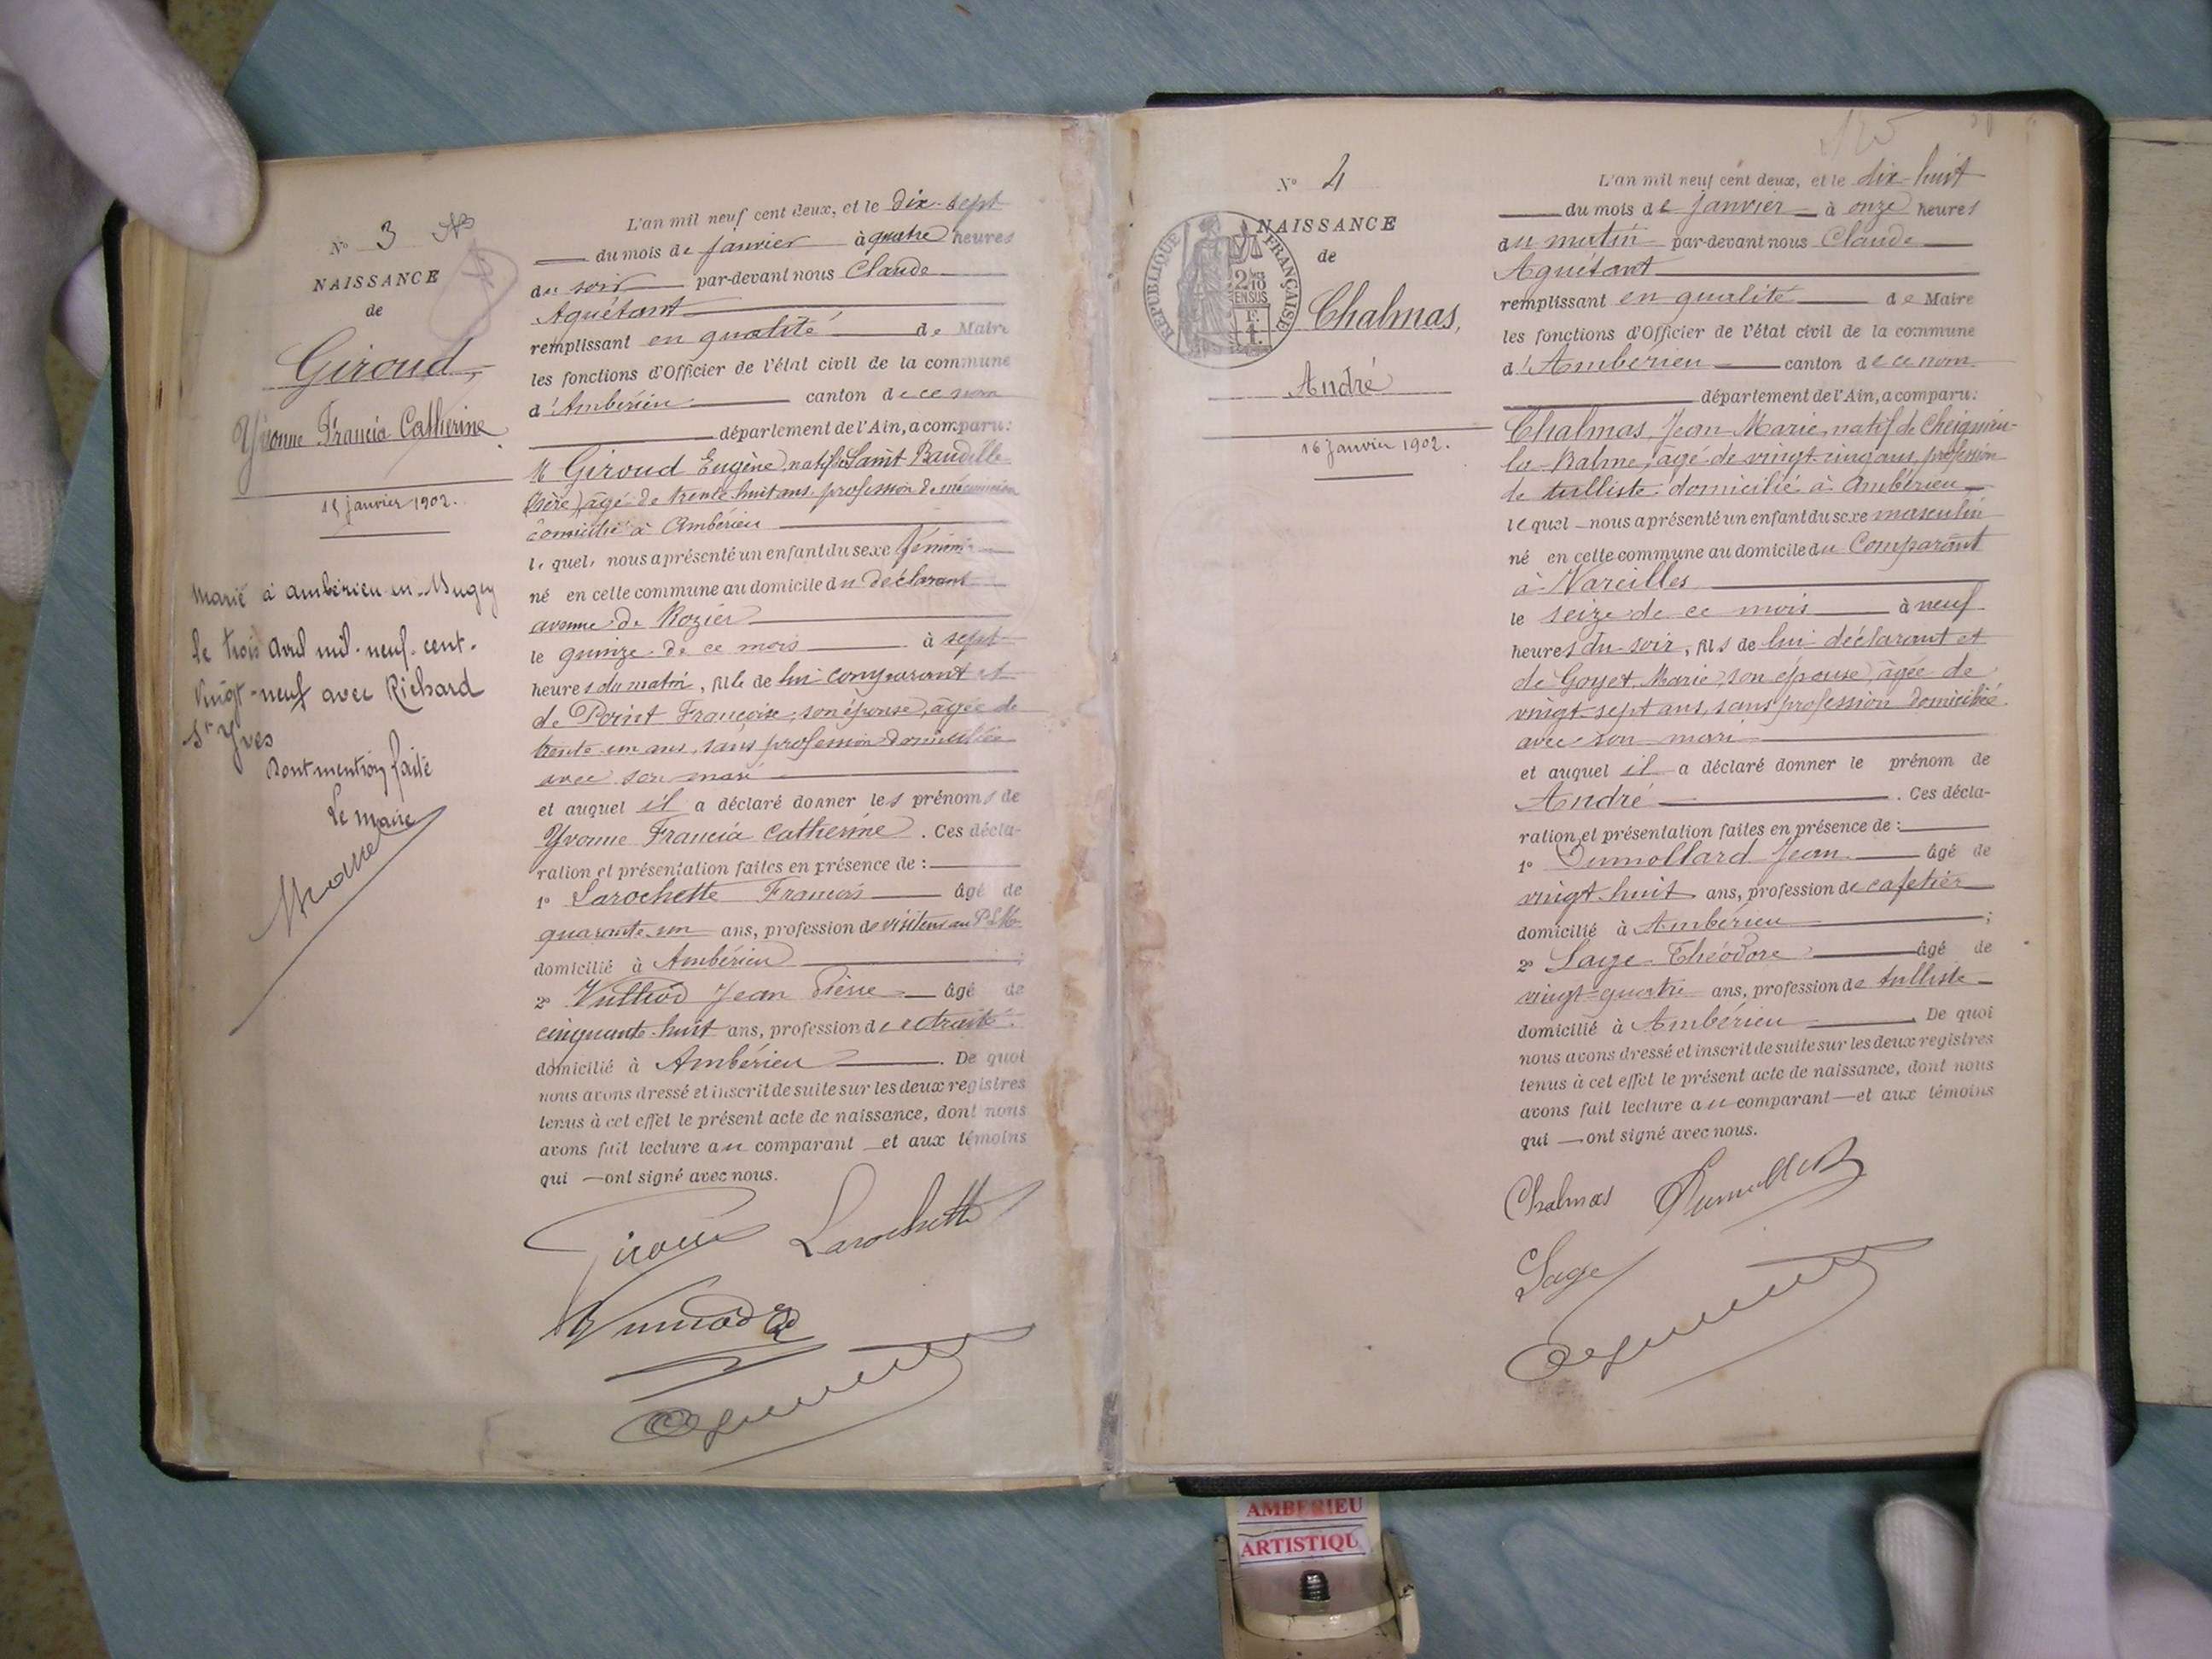 N° 3
NAISSANCE
de
Giroud,
Yvonne Francia Catherine
15 janvier 1902.
Marié à Ambérieu-en-Bugey
le trois avril mil-neuf-cent-
vingt-neuf avec Richard
St Yves
Dont mention faite
Le maire
L'an mil neuf cent deux, et le dix-sept
du mois de janvier à quatre heures
du soir par-devant nous Claude
Aguétant
remplissant en qualité de Maire
les fonctions d'Officier de l'état civil de la commune
d'Ambérieu canton de ce nom
département de l'Ain, a comparu:
M Giroud Eugène, natif de Saint Baudille
(Isère) âgé de trente huit ans profession de mécanicien
domicilié à Ambérieu
lequel, nous a présenté un enfant du sexe féminin
né en cette commune au domicile du déclarant
avenue de Rozier
le quinze de ce mois à sept
heures du matin, fille de lui comparant et
de Point Françoise, son épouse, âgée de
trente-un ans, sans profession domiciliée
avec son mari
et auquel il a déclaré donner les prénoms de
Yvonne Francia Catherine. Ces décla-
ration et présentation faites en présence de :
1° Larochette François âgé de
quarante-un ans, profession de visiteur au P.L.M.
domicilié à Ambérieu ;
2° Vulliod Jean Pierre âgé de
cinquante-huit ans, profession de retraité.
domicilié à Ambérieu. De quoi
nous avons dressé et inscrit de suite sur les deux registres
tenus à cet effet le présent acte de naissance, dont nous
avons fait lecture au comparant et aux témoins
qui — ont signé avec nous.
Giroud Larochette
N° 4
NAISSANCE
de
REPUBLIQUE FRANÇAISE
2/10
EN SUS
F.
1.
Chalmas,
André
16 janvier 1902.
L'an mil neuf cent deux, et le dix-huit
du mois de janvier à onze heures
du matin par-devant nous Claude
Aguétant
remplissant en qualité de Maire
les fonctions d'Officier de l'état civil de la commune
d'Ambérieu canton de ce nom
département de l'Ain, a comparu:
Chalmas, Jean Marie, natif de Cheignieu-
la-Balme, âgé de vingt-cinq ans, profession
de tulliste domicilié à Ambérieu
lequel nous a présenté un enfant du sexe masculin
né en cette commune au domicile du Comparant
à Vareilles
le seize de ce mois à neuf
heures du soir, fils de lui déclarant et
de Goyet, Marie, son épouse, âgée de
vingt-sept ans, sans profession domiciliée
avec son mari
et auquel il a déclaré donner le prénom de
André. Ces décla-
ration et présentation faites en présence de :
1° Dumollard Jean âgé de
vingt huit ans, profession de cafetier
domicilié à Ambérieu ;
2° Sage Théodore âgé de
vingt-quatre ans, profession de tulliste
domicilié à Ambérieu. De quoi
nous avons dressé et inscrit de suite sur les deux registres
tenus à cet effet le présent acte de naissance, dont nous
avons fait lecture au comparant — et aux témoins
qui — ont signé avec nous.
Chalmas Dumollard
Sage
AMBERIEU
ARTISTIQU